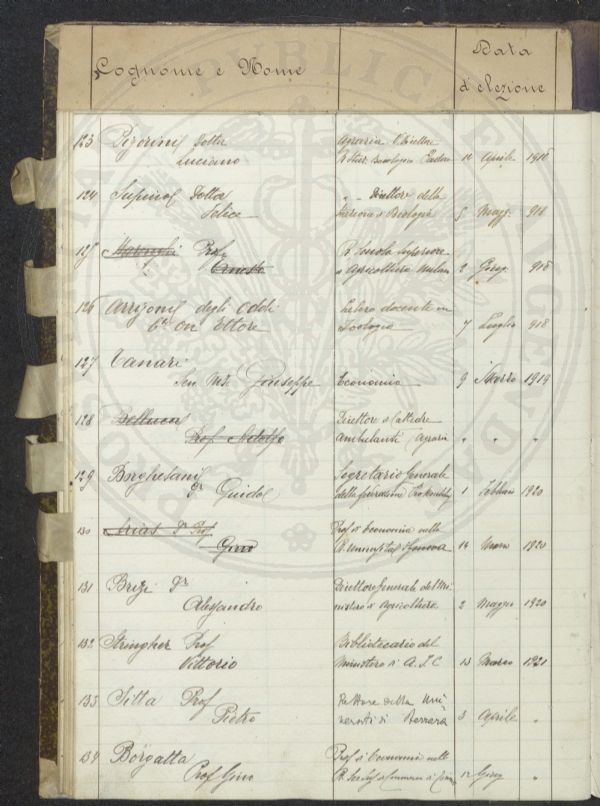 Cognome e Nome
Data
d'elezione
123 Pigorini Dottor
Luciano
Agraria Direttore
R. Staz. Bacologica Padova 14 Aprile 1918
124 Supino Dottor
Felice
" " Direttore della
Stazione di Biologia 5 Magg. 918
125 Prof
Ernesto
R. Scuola Superiore
di Agricoltura Milano 2 Giug. 918
126 Arrigoni degli Oddi
Cte On Ettore
Libero docente in
Zoologia 7 Luglio 918
127 Tanari
Sen. Mse Giuseppe Economia 9 Marzo 1919
128 Bellucci
Prof Adolfo
Direttore di Cattedre
ambulanti Agraria " " "
129 Borghesani
Dr Guido
Segretario Generale
della 1 Febbraio 1920
130 Arias Dr Prof
Gino
Prof. di Economia nella
R. Università di Genova 14 Marzo 1920
131 Brizi Dr
Alessandro
Direttore Generale del Mi-
nistero di Agricoltura 2 Maggio 1920
132 Stringher Prof
Vittorio
Bibliotecario del
Ministero di A.I.C 13 Marzo 1921
133 Sitta Prof
Pietro
Rettore della Uni-
versità di Ferrara 3 Aprile "
134 Borgatta
Prof Gino
Prof. di Economia nella
R. 12 Giug "